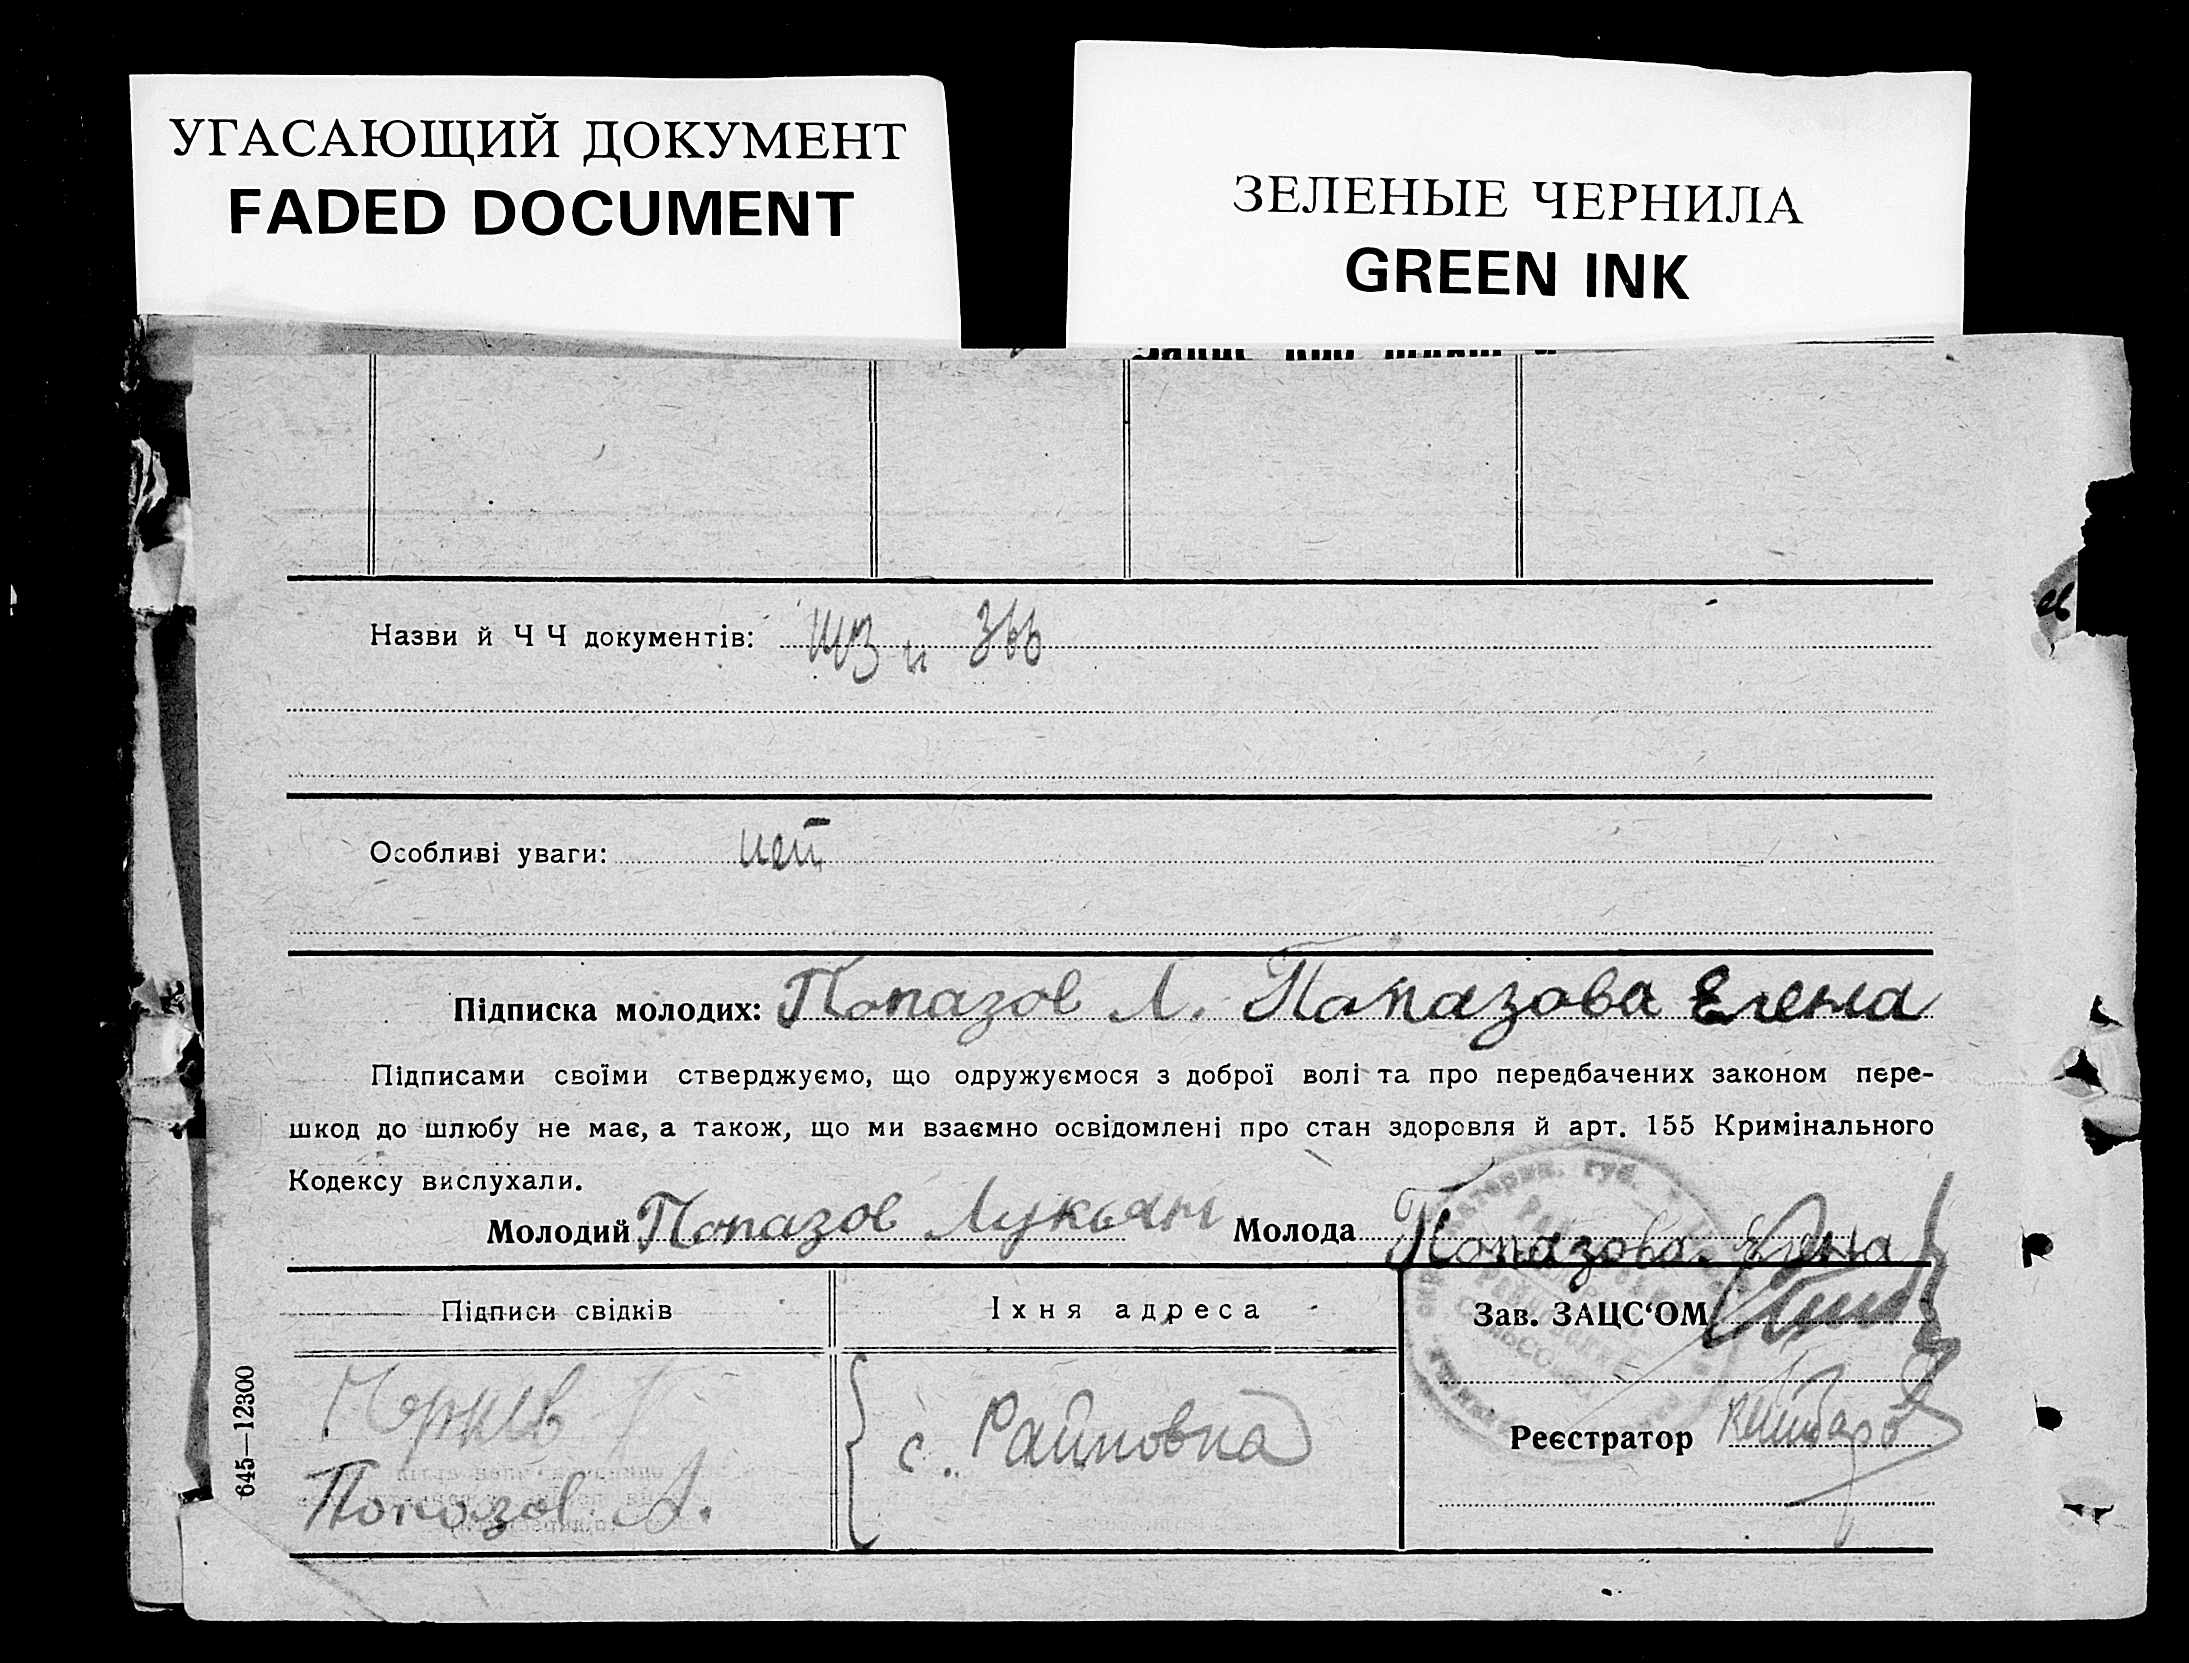 УГАСАЮЩИЙ ДОКУМЕНТ
FADED DOCUMENT
ЗЕЛЕНЫЕ ЧЕРНИЛА
GREEN INK
Назви й Ч Ч документів:
Особливі уваги: нет
Підписка молодих: Попазов Л. Попазова Елена
Підписами своїми стверджуємо, що одружуємося з доброї волі та про передбачених законом пере-
шкод до шлюбу не має, а також, що ми взаємно освідомлені про стан здоровля й арт. 155 Кримінального
Кодексу вислухали.
Молодий Попазов Лукьян Молода Попазова Елена
Підписи свідків Їхня адреса Зав. ЗАЦС‘ОМ
с. Райновка
Реєстратор
Попозов
645—12300